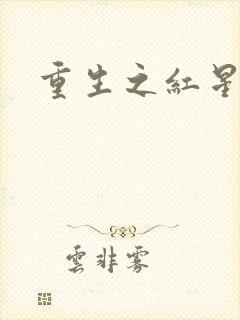 重生之紅星
雲非雾